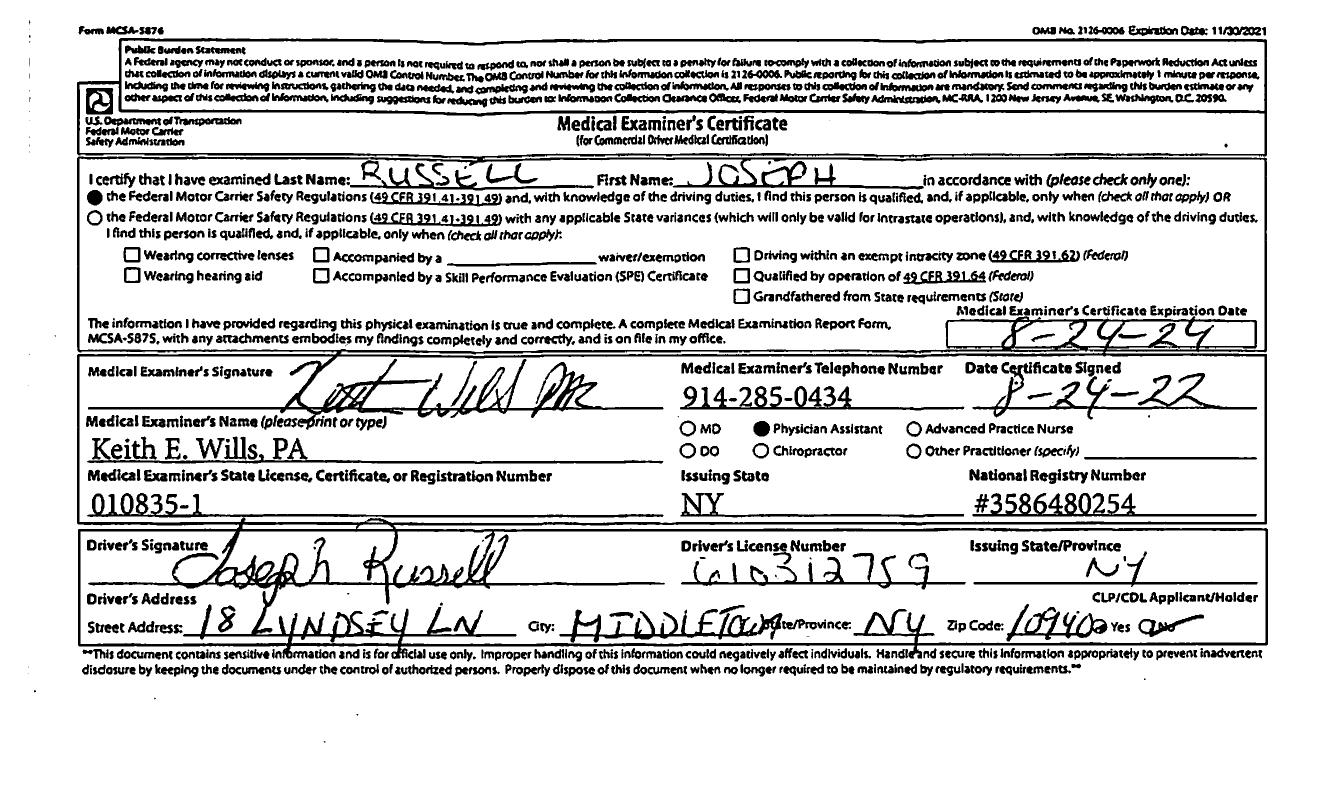 Form MCSA-5876
OMB No. 2126-0006 Expiration Date: 11/30/2021
Public Burden Statement
A Federal agency may not conduct or sponsor, and a person is not required to respond to, nor shall a person be subject to a penalty for failure to comply with a collection of information subject to the requirements of the Paperwork Reduction Act unless
that collection of information displays a current valid OMB Control Number. The OMB Control Number for this information collection is 2126-0006. Public reporting for this collection of information is estimated to be approximately 1 minute per response,
including the time for reviewing instructions, gathering the data needed, and completing and reviewing the collection of information. All responses to this collection of information are mandatory. Send comments regarding this burden estimate or any
other aspect of this collection of information, including suggestions for reducing this burden to: Information Collection Clearance Officer, Federal Motor Carrier Safety Administration, MC-RRA, 1200 New Jersey Avenue, SE, Washington, D.C. 20590.
U.S. Department of Transportation
Federal Motor Carrier
Safety Administration
Medical Examiner's Certificate
(for Commercial Driver Medical Certification)
I certify that I have examined Last Name: RUSSELL First Name: JOSEPH in accordance with (please check only one):
the Federal Motor Carrier Safety Regulations (49 CFR 391.41-391.49) and, with knowledge of the driving duties, I find this person is qualified, and, if applicable, only when (check all that apply) OR
the Federal Motor Carrier Safety Regulations (49 CFR 391.41-391.49) with any applicable State variances (which will only be valid for intrastate operations), and, with knowledge of the driving duties,
I find this person is qualified, and, if applicable, only when (check all that apply):
Wearing corrective lenses Accompanied by a waiver/exemption Driving within an exempt intracity zone (49 CFR 391.62) (Federal)
Wearing hearing aid Accompanied by a Skill Performance Evaluation (SPE) Certificate Qualified by operation of 49 CFR 391.64 (Federal)
Grandfathered from State requirements (State)
Medical Examiner's Certificate Expiration Date
The information I have provided regarding this physical examination is true and complete. A complete Medical Examination Report Form,
MCSA-5875, with any attachments embodies my findings completely and correctly, and is on file in my office.
8-24-24
Medical Examiner's Signature Medical Examiner's Telephone Number Date Certificate Signed
914-285-0434 8-24-22
Medical Examiner's Name (please print or type)
MD Physician Assistant Advanced Practice Nurse
Keith E. Wills, PA
DO Chiropractor Other Practitioner (specify)
Medical Examiner's State License, Certificate, or Registration Number Issuing State National Registry Number
010835-1 NY #3586480254
Driver's Signature Driver's License Number Issuing State/Province
Joseph Russell 610312759 NY
Driver's Address CLP/CDL Applicant/Holder
Street Address: 18 LYNDSEY LN City: MIDDLETOWN State/Province: NY Zip Code: 10940 Yes No
**This document contains sensitive information and is for official use only. Improper handling of this information could negatively affect individuals. Handle and secure this information appropriately to prevent inadvertent
disclosure by keeping the documents under the control of authorized persons. Properly dispose of this document when no longer required to be maintained by regulatory requirements.**